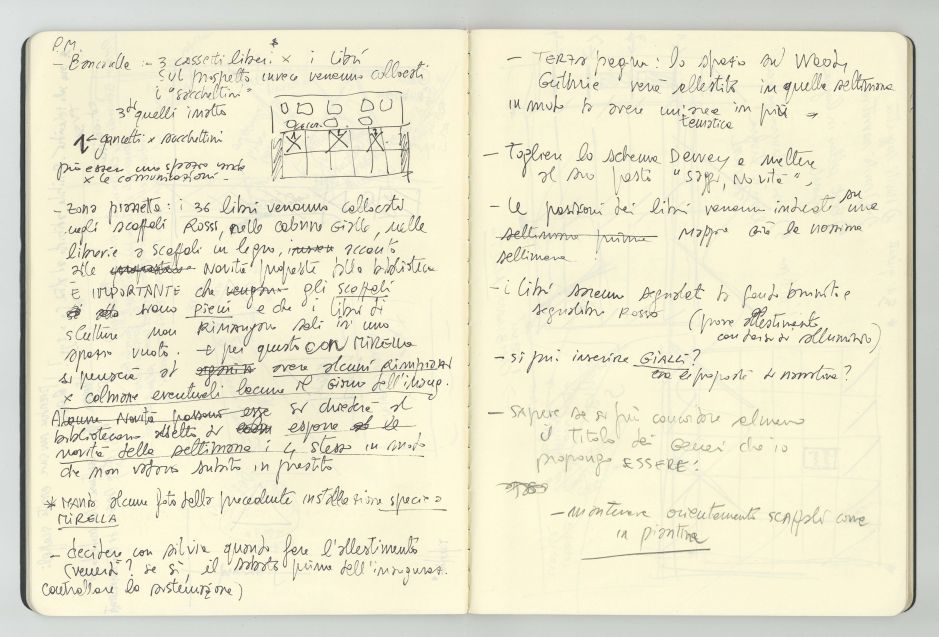 P.M.
- Bancone :- 3 cassetti liberi x i libri
sul prospetto invece venanno collocati
i "sacchettini"
3 di quelli in alto
gancetti x sacchettini
può essere uno spazio
x le comunicazioni -
- Zona pianeta: i 36 libri venanno collocati
negli scaffali Rossi, nelle colonne Gialle, nelle
librerie a scaffali in legno, accanto
alle Novità proposte dalla biblioteca
È IMPORTANTE che gli scaffali
siano pieni e che i libri di
scultura non RIMANGANO soli in uno
spazio vuoto. → per questo CON MIRELLA
si penserà ad avere alcuni RIMPIAZZI
x colmare eventuali lacune il giorno dell'inaug.
Alcune Novità possono esse si chiederà al
bibliotecario di esporre le
novità della settimana i 4 stesso in modo
che non vadano subito in prestito
* MANDA alcune foto della precedente installazione
MIRELLA
- decidere con Silvia quando fare l'allestimento
(venerdì? se sì il sabato prima dell'inauguraz.
controllare la sistemazione)
- TERZA pagina: lo spazio su Woody
Guthrie verrà allestito in quella settimana
in modo da avere un'area in più →
tematica
- Togliere lo schema Dewey e mettere
al suo posto "Saggi, Novità",
- Le posizioni dei libri venanno indicate su una
settimana prima mappa già la nossima
settimana!
- i libri saranno segnalati da fondo brunito e
segnalibro Rosso
(prova allestimento
con
- si può inserire GIALLI?
era le proposte di narrativa?
- SAPERE se si può concordare almeno
il TITOLO dei Generi che io
propongo ESSERE!
- mantenere orientamento SCAFFALI come
in piantina